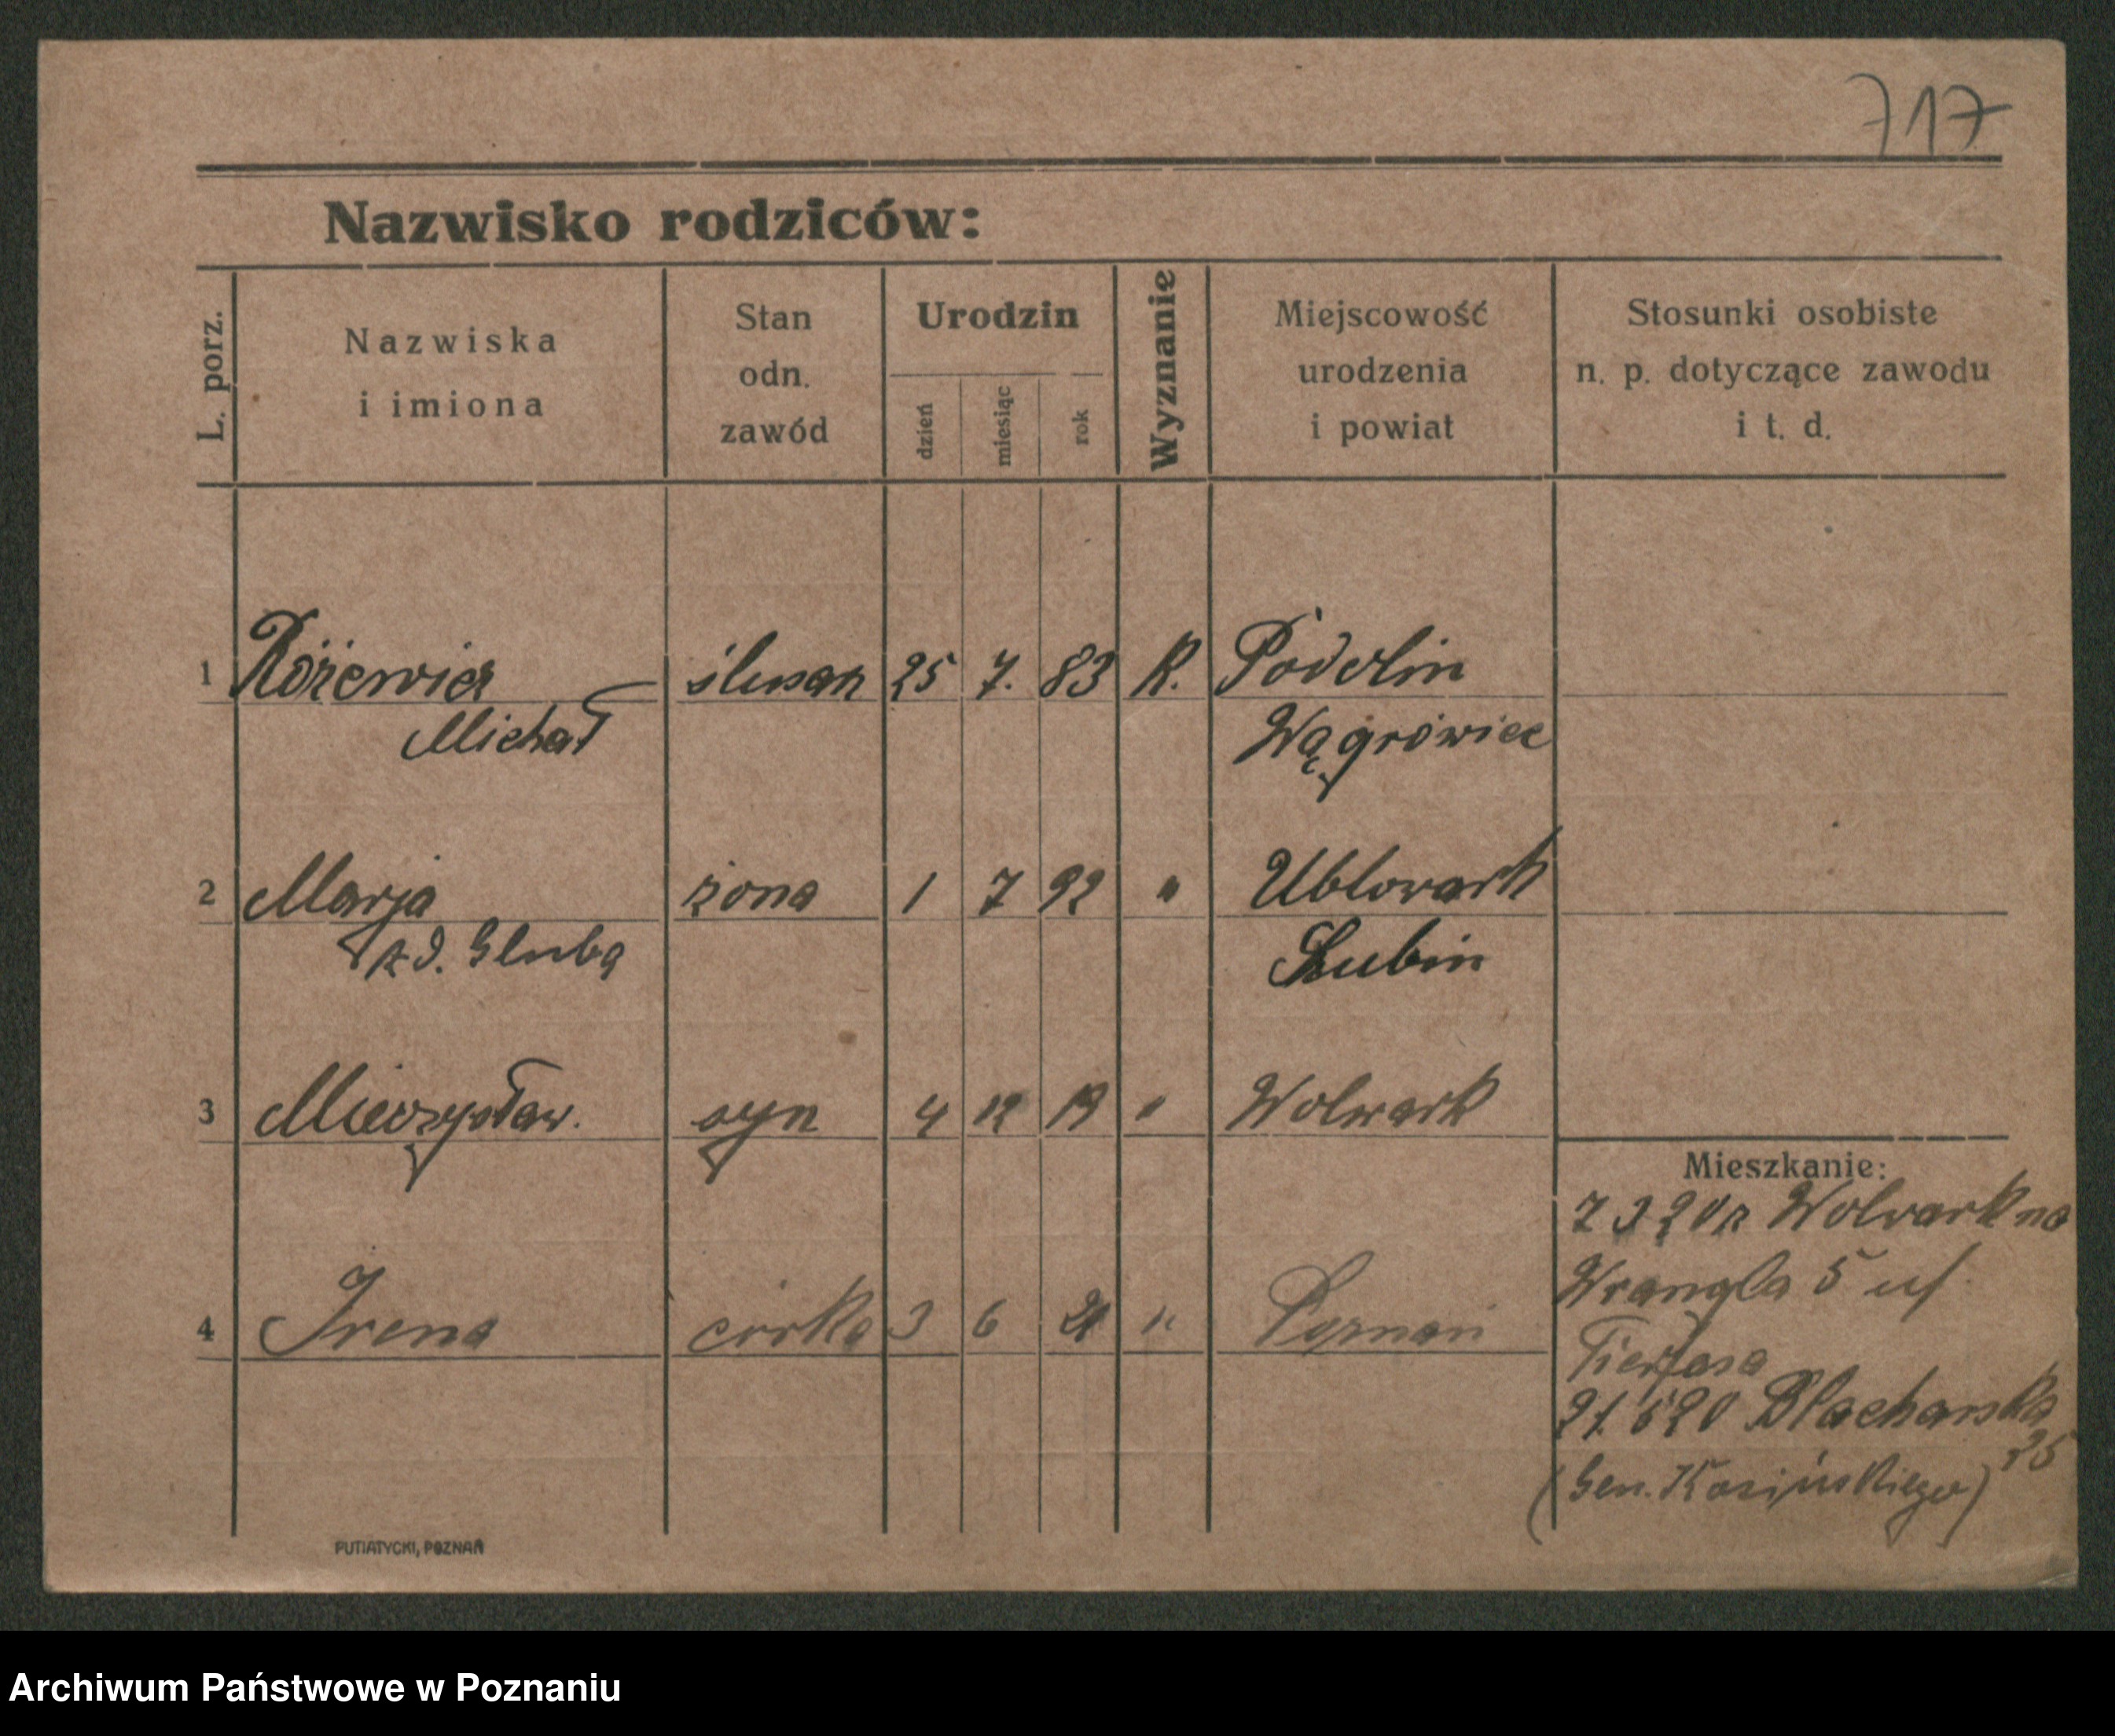 717
Nazwisko rodziców:
L. porz.
Nazwiska
i imiona
Stan
odn.
zawód
Urodzin
dzień
miesiąc
rok
Wyznanie
Miejscowość
urodzenia
i powiat
Stosunki osobiste
n. p. dotyczące zawodu
i t. d.
1 Różewicz ślusarz 25 7. 83 R. Podolin
Michał Wągrówiec
2 Marja żona 1 7 92 "
z d. Gluba Szubin
3 Mieczysław. syn 4 12 19 " Wolwark
Mieszkanie:
Wolwark na
4 Irena córka 3 6 21 " Poznań
Wrangla 5 u/.
Blacharska
25
(Gen. Kosińskiego)
PUTIATYCKI, POZNAŃ
Archiwum Państwowe w Poznaniu